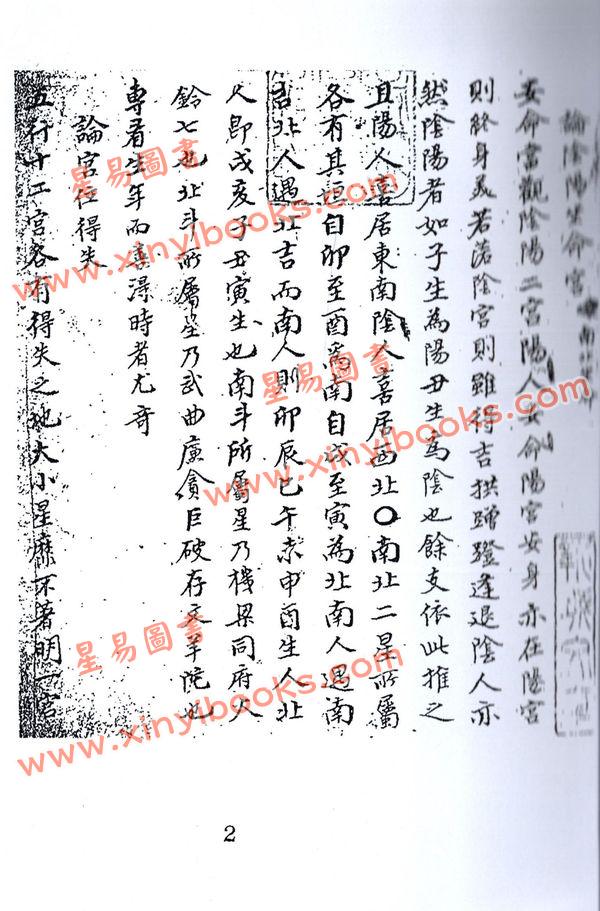 論陰陽坐命宮
安命當觀陰陽二宮陽人安命陽宮安身亦在陽宮
則終身美若落陰宮則雖得吉拱蹭蹬逢退陰人亦
然陰陽者如子生為陽丑生為陰也餘支依此推之
且陽人喜居東南陰人喜居西北〇南北二星所屬
各有其自卯至酉為南自戌至寅為北南人遇南
吉北人遇北吉而南人則卯辰巳午未申酉生人北
人即戌亥子丑寅生也南斗所屬星乃機梁同府火
鈴七也北斗所屬星乃武曲廉貪巨破存羊陀也
專看生年而得時者尤奇
論宮位得失
五行十二宮各有得失之地大小星靡不著明一宮
星易圖書
www.xinyibooks.com
星易圖書
www.xinyibooks.com
星易圖書
www.xinyibooks.com
2